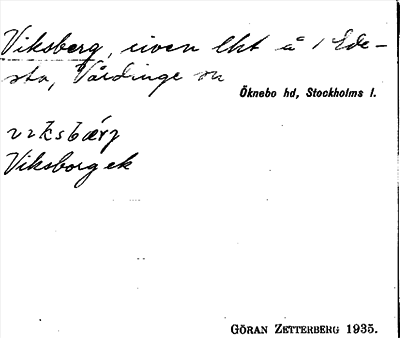 Viksberg, även lht å 1 Ede-
sta, Vårdinge sn
Öknebo hd, Stockholms l.
vɩksbærj
Viksborg ek
GÖRAN ZETTERBERG 1935.